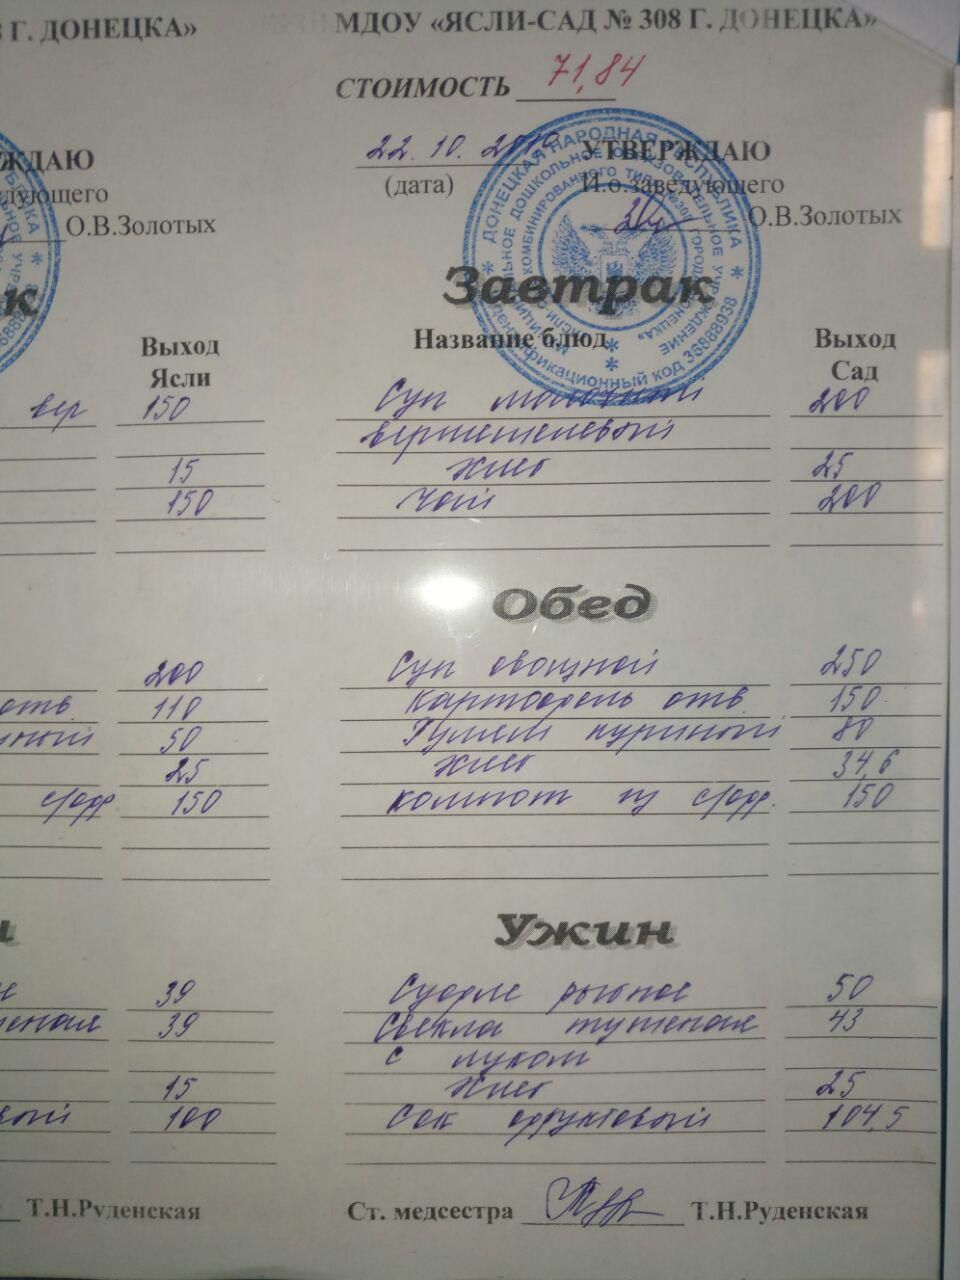 Г. ДОНЕЦКА»
ЖДАЮ
дующего
О.В.Золотых
к
Выход
Ясли
вер 150
15
150
200
отв 110
50
25
с/фр. 150
39
39
15
100
Т.Н.Руденская
МДОУ «ЯСЛИ-САД № 308 Г. ДОНЕЦКА»
СТОИМОСТЬ 71,84
22.10.2019 УТВЕРЖДАЮ
(дата) И.о.заведующего
О.В.Золотых
ДОНЕЦКАЯ НАРОДНАЯ РЕСПУБЛИКА
идентификационный код 36888938
Завтрак
Название блюд Выход
Сад
Суп молочный 200
вермешелевый
Хлеб 25
Чай 200
Обед
Суп овощной 250
Картофель отв 150
Гуляш куриный 80
Хлеб 34,6
Компот из с/фр. 150
Ужин
Суфле рыбное 50
Свекла тушеная 43
с луком
Хлеб 25
Сок фруктовый 104,5
Ст. медсестра Т.Н.Руденская